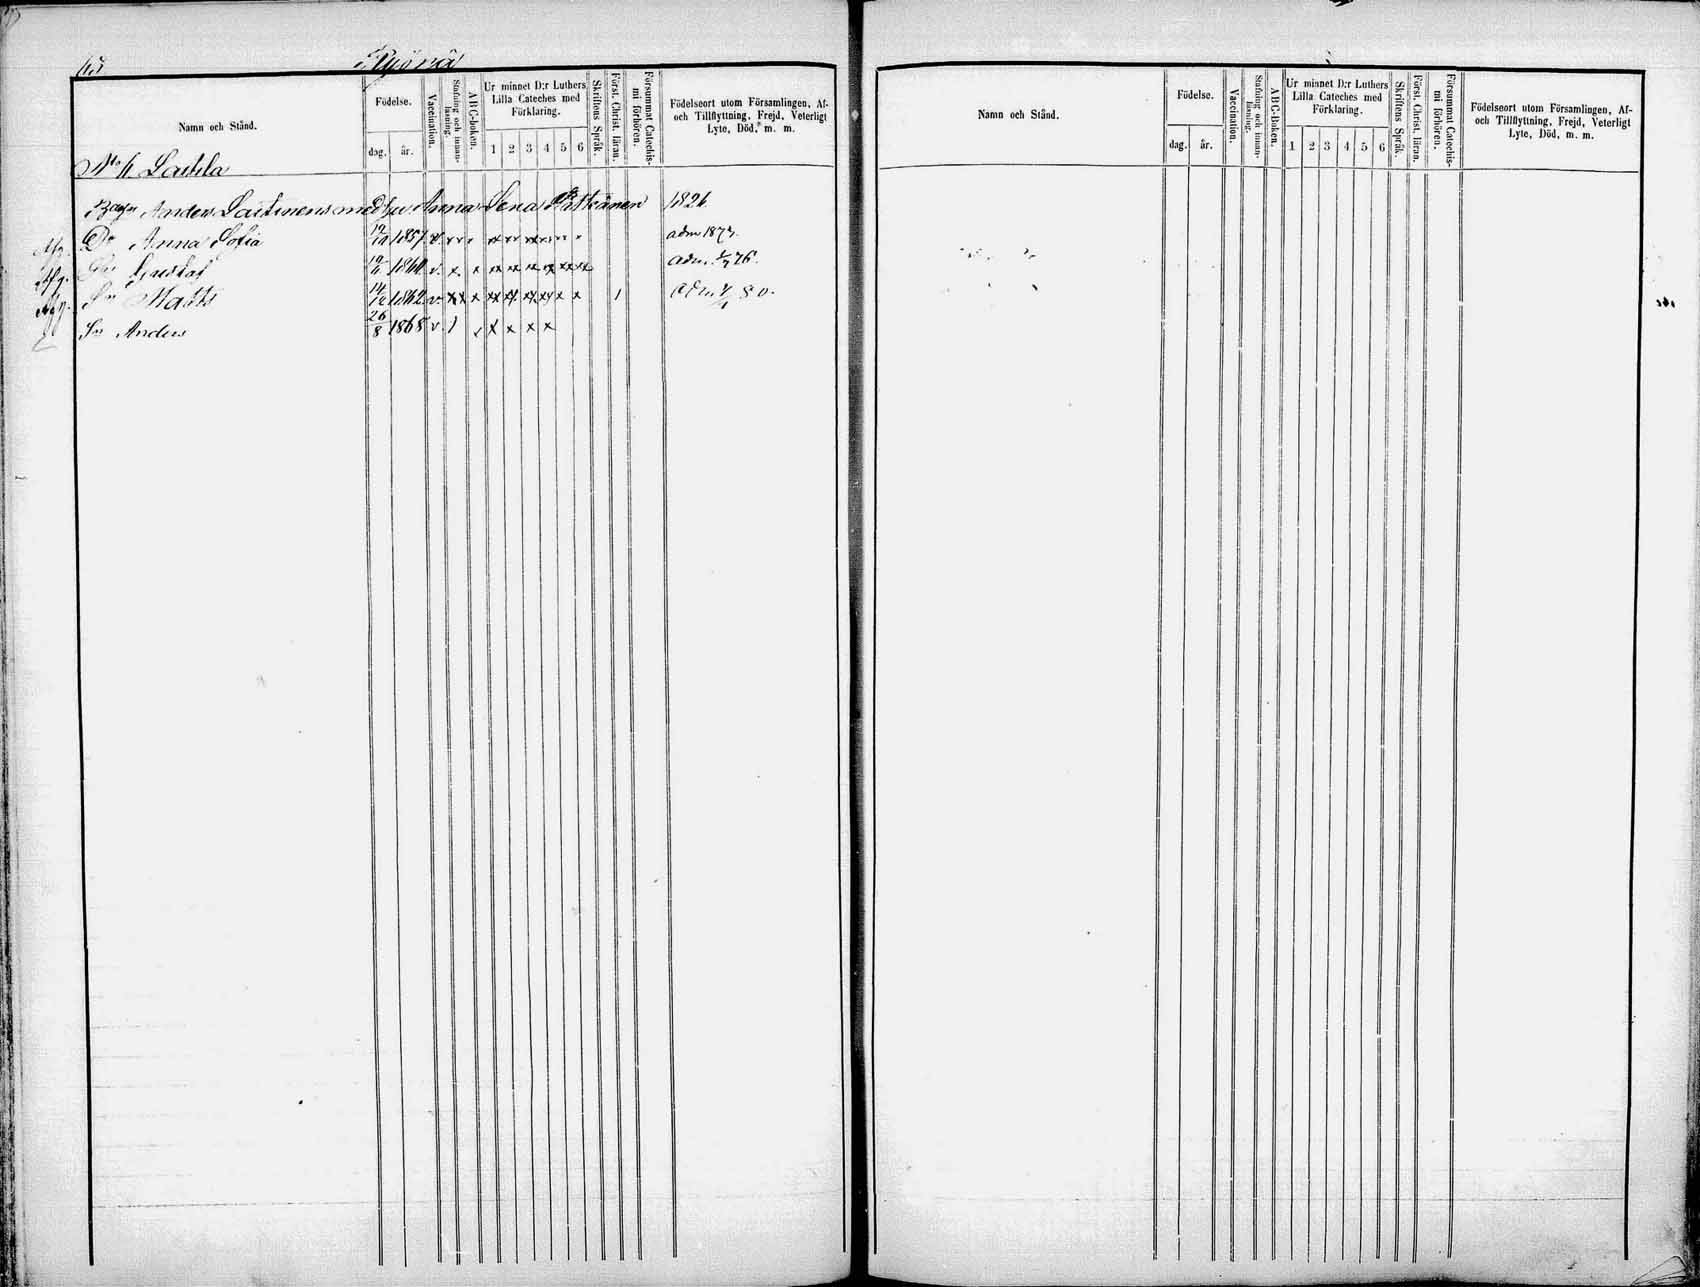 Namn och Stånd.
Födelse.
dag. år.
Vaccination.
Stafning och innanläsning.
ABC-boken.
Ur minnet D:r Luthers
Lilla Cateches med
Förklaring.
1 2 3 4 5 6
Skriftens Språk.
Först. Christ. läran.
Försummat Catechismi förhören.
Födelseort utom Församlingen, Af-
och Tillflyttning, Frejd, Veterligt
Lyte, Död, m. m.
Lautila
Anders Lautinens med hu Anna Lena 1826
Afg. Dr Anna Sofia 1857 v. adm 1873.
Afg. Sn Gustaf 1860 v. adm. 76.
Afg. Sn Matts 14/12 1862 v. 1 80.
Sn Anders 26/8 1868 v.
Namn och Stånd.
Födelse.
dag. år.
Vaccination.
Stafning och innanläsning.
ABC-boken.
Ur minnet D:r Luthers
Lilla Cateches med
Förklaring.
1 2 3 4 5 6
Skriftens Språk.
Först. Christ. läran.
Försummat Catechismi förhören.
Födelseort utom Församlingen, Af-
och Tillflyttning, Frejd, Veterligt
Lyte, Död, m. m.